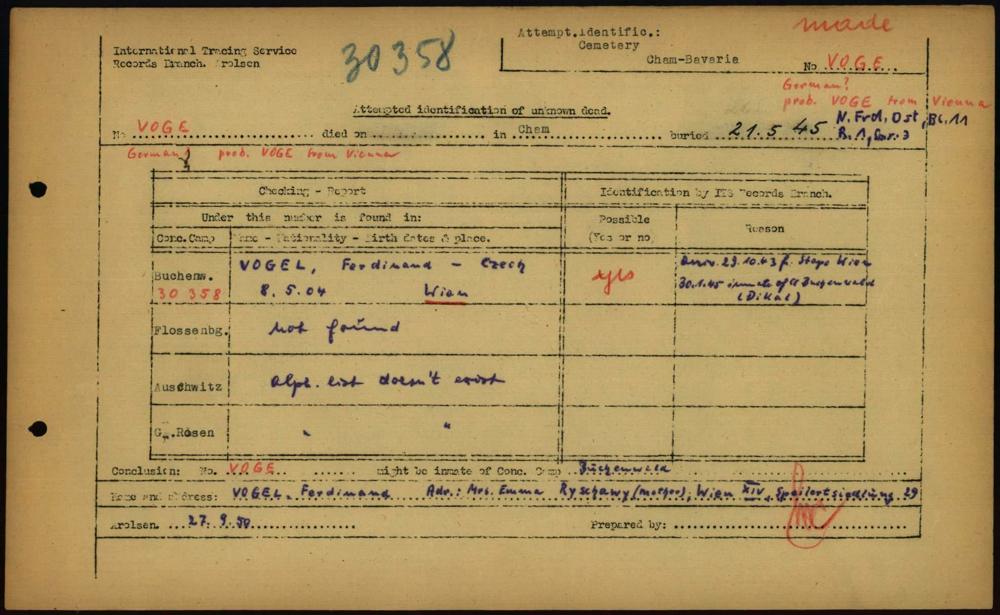 made
International Tracing Service
Records Branch. Arolsen
30358
Attempt.Identific.:
Cemetery
Cham-Bavaria
No VOGE
German?
prob. VOGE from Vienna
Attempted identification of unknown dead.
N. Frd. Ost, Bl. 11
No VOGE died on in Cham buried 21.5.45 R. 1, Gr. 3
German? prob. VOGE from Vienna
Checking - Report
Identification by ITS Records Branch.
Under this number is found in:
Possible
(Yes or no)
Reason
Conc.Camp
Name - Nationality - Birth dates & place.
Buchenw.
30 358
VOGEL, Ferdinand - Czech
8.5.04 Wien
yes
arriv. 29.10.43 f. Stapo Wien
30.1.45 inmate of CC Buchenwald
(Dikal)
Flossenbg.
not found
Auschwitz
alph. list doesn't exist
Gr.Rosen
" "
Conclusion: No. VOGE might be inmate of Conc. Camp Buchenwald
Name and address: VOGEL, Ferdinand Adr.: Mrs. Emma Ryschawy (mother), Wien XIV, 29
Arolsen. 27.9.50 Prepared by: